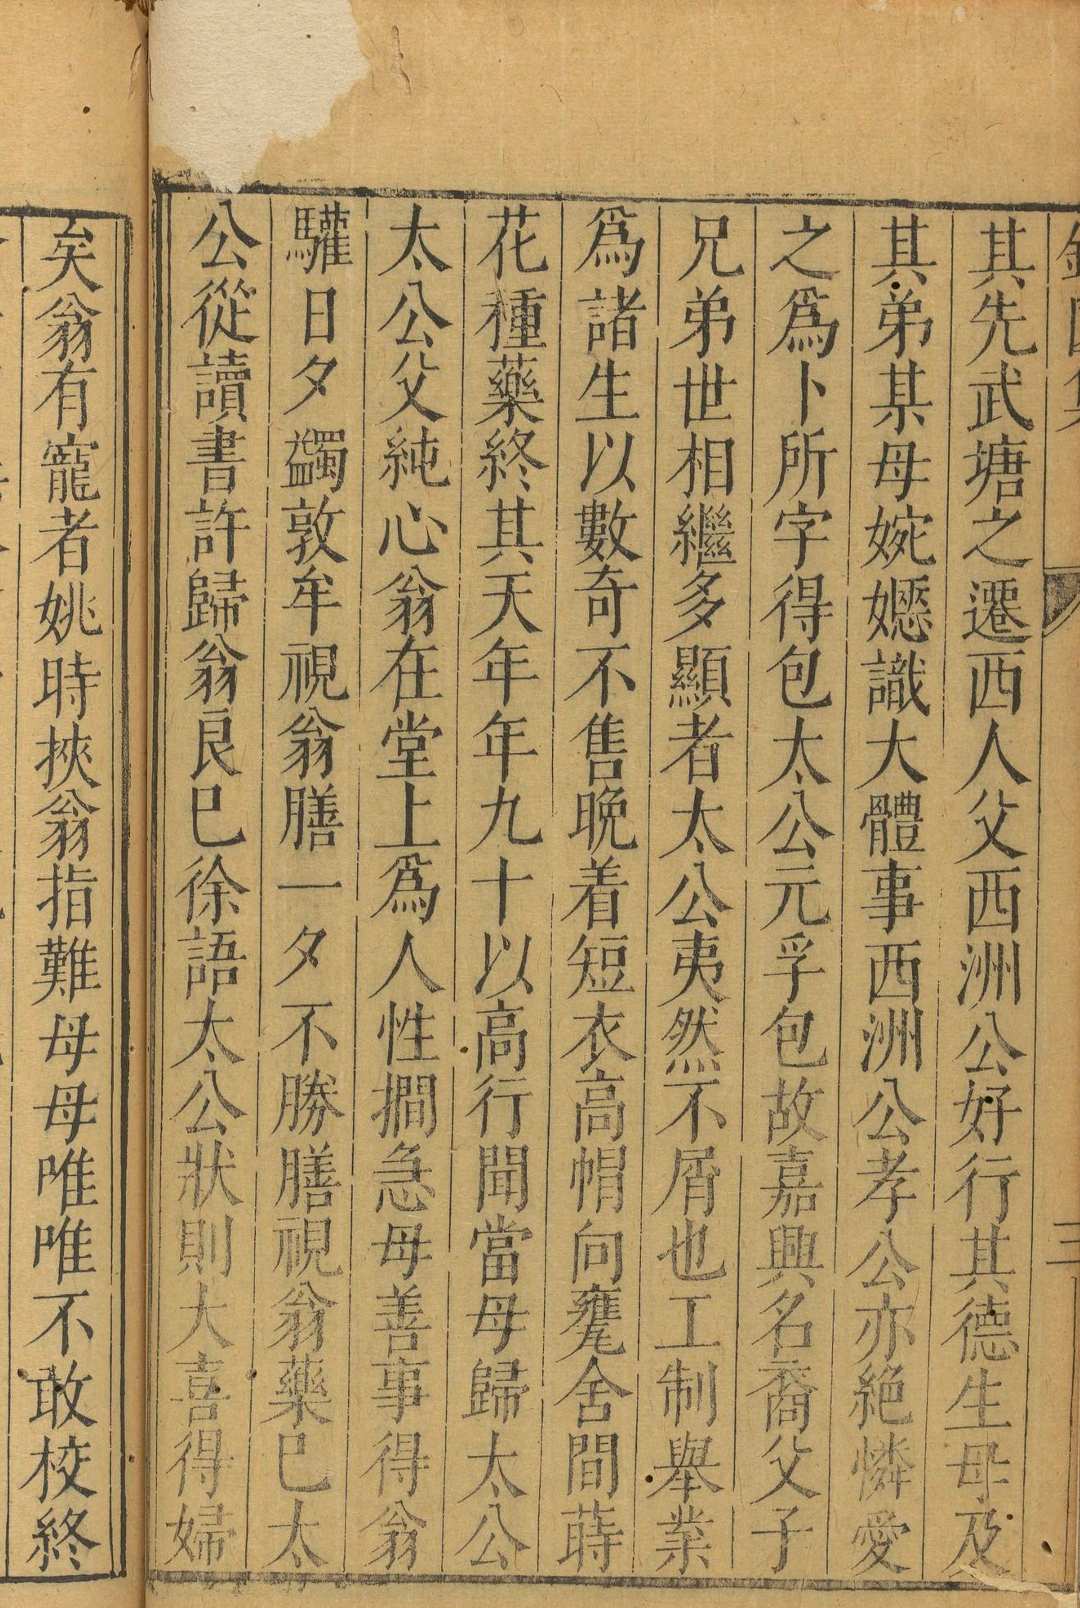 其先武塘之遷西人父西洲公好行其德生母及
其弟某母婉嬺識大體事西洲公孝公亦絕憐愛
之爲卜所字得包太公元孚包故嘉興名裔父子
兄弟世相繼多顯者太公夷然不屑也工制舉業
爲諸生以數奇不售晚着短衣高帽向甕舍間蒔
花種藥終其天年年九十以高行聞當母歸太公
太公父純心翁在堂上爲人性撊急母善事得翁
驩日夕蠲敦牟視翁膳一夕不勝膳視翁藥已太
公從讀書許歸翁良已徐語太公狀則大喜得婦
矣翁有寵者姚時挾翁指難母母唯唯不敢校終